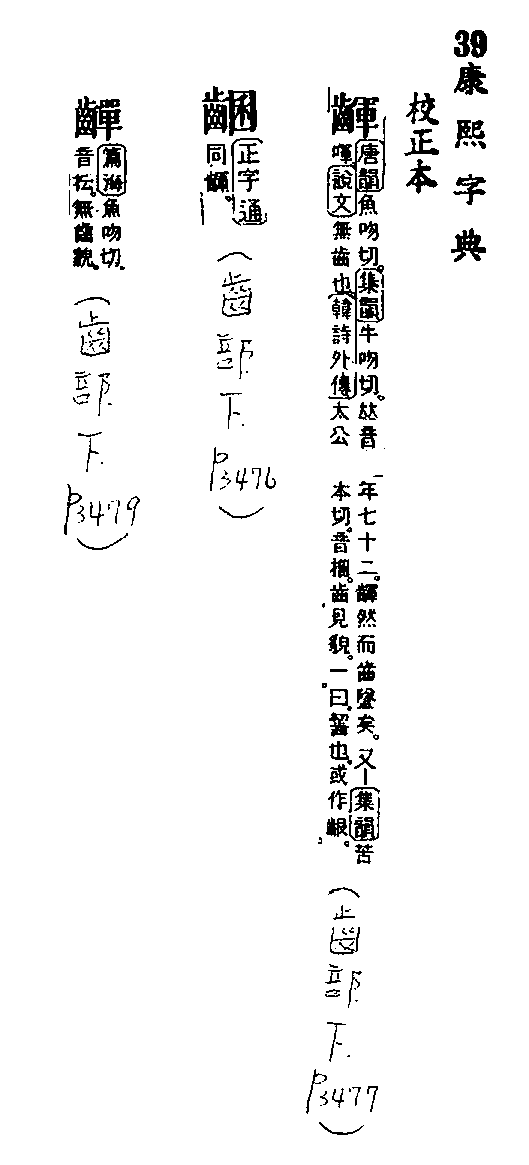 39康熙字典
校正本
齳
唐韻魚吻切。集韻牛吻切。𠀤音
喗說文無齒也。韓詩外傳太公
年七十二。齳然而齒墮矣。又—集韻苦
本切。音捆。齒見貌。一曰齧也。或作齦。
(齒部下.P3477)
齫
正字通
同齳。
(齒部下.P3476)
篇海魚吻切.
音抎。無齒貌。
(齒部下.P3479)